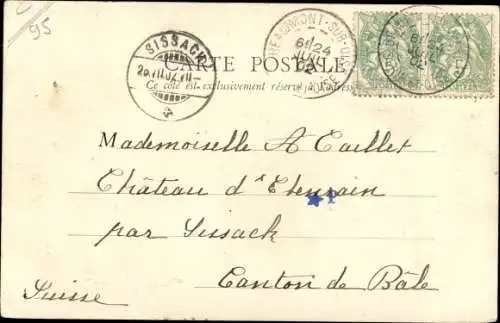 95
SISSACH
BEAUMONT-SUR-OISE
CARTE POSTALE
Ce côté est exclusivement réservé à l'adresse
Mademoiselle A Caillet
Château d'Ebenrain
par Sissack
Canton de Bâle
Suisse